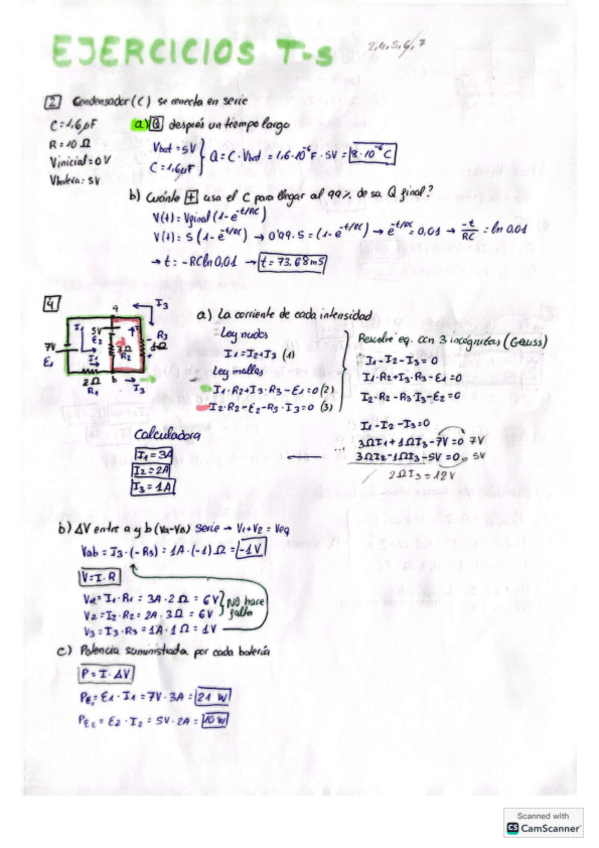 EJERCICIOS T-5
2,4,5,6,7
2 Condensador (C) se conecta en serie
C = 1,6 µF
R = 10 Ω
Vinicial = 0V
Vbateria = 5V
a) Q después un tiempo largo
Vbat = 5V
C = 1,6 µF
Q = C · Vbat = 1,6·10⁻⁶ F · 5V = 8·10⁻⁶ C
b) Cuánto t usa el C para llegar al 99% de su Q final?
V(t) = Vfinal (1-e^-t/RC)
V(t) = 5 (1-e^-t/RC) → 0'99·5 = (1-e^-t/RC) → e^-t/RC = 0,01 → -t/RC = ln 0,01
→ t = -RC ln 0,01 → t = 73,68 ms
4
a
I3
I1
5V
E2
7V
E1
3Ω
R2
R3
1Ω
2Ω
R1
b
I3
a) La corriente de cada intensidad
- Ley nudos
I1 = I2 + I3 (1)
Ley mallas
I1·R2 + I3·R3 - E1 = 0 (2)
I2·R2 - E2 - R3·I3 = 0 (3)
Resolver eq. con 3 incógnitas (Gauss)
I1 - I2 - I3 = 0
I1·R2 + I3·R3 - E1 = 0
I2·R2 - R3 I3 - E2 = 0
I1 - I2 - I3 = 0
3Ω I1 + 1Ω I3 - 7V = 0 7V
3Ω I3 - 1Ω I3 - 5V = 0 5V
2Ω I3 = 12V
Calculadora
I1 = 3A
I2 = 2A
I3 = 1A
b) ΔV entre a y b (Va-Vb) serie → V1+V2 = Veq
Vab = I3·(-R3) = 1A·(-1)Ω = -1V
V = I·R
V1 = I1·R1 = 3A·2Ω = 6V
V2 = I2·R2 = 2A·3Ω = 6V
V3 = I3·R3 = 1A·1Ω = 1V
No hace falta
c) Potencia suministrada por cada batería
P = I·ΔV
PE1 = E1·I1 = 7V·3A = 21 W
PE2 = E2·I2 = 5V·2A = 10 W
Scanned with
CS CamScanner